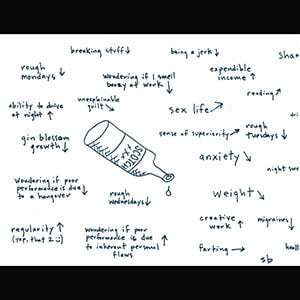 breaking stuff ↓
being a jerk ↓
Sha
rough
mondays ↓
Wondering if I smell
boozy at work ↓
expendible
income ↑
reading ↗
ability to drive
at night ↑
unexplainable
guilt ↘
sex life ↗
gin blossom
growth ↓
SCOTCH
XXX
sense of superiority ↗
rough
tuesdays ↓
anxiety ↘
night swe
Wondering if poor
performance is due
to a hangover ↓
rough
wednesdays ↓
weight ↘
regularity ↑
(yep. that 2 ☺)
wondering if poor
performance is due
to inherent personal
flaws ↑
creative
work ↑
migraines ↓
farting →
sb